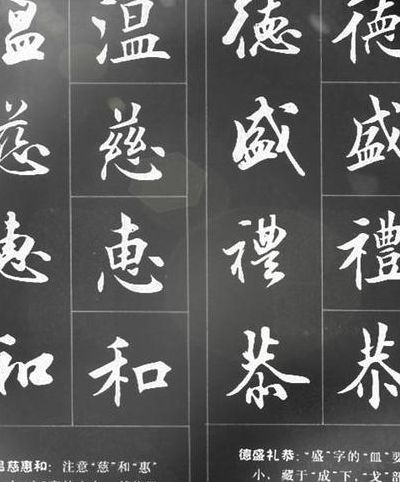 德盛禮恭
德盛禮恭
温慈惠和
温慈惠和
德盛礼恭：“盛”字的“皿”要
小，藏于“成”下，“戈”部
慈惠和：注意“慈”和“惠”